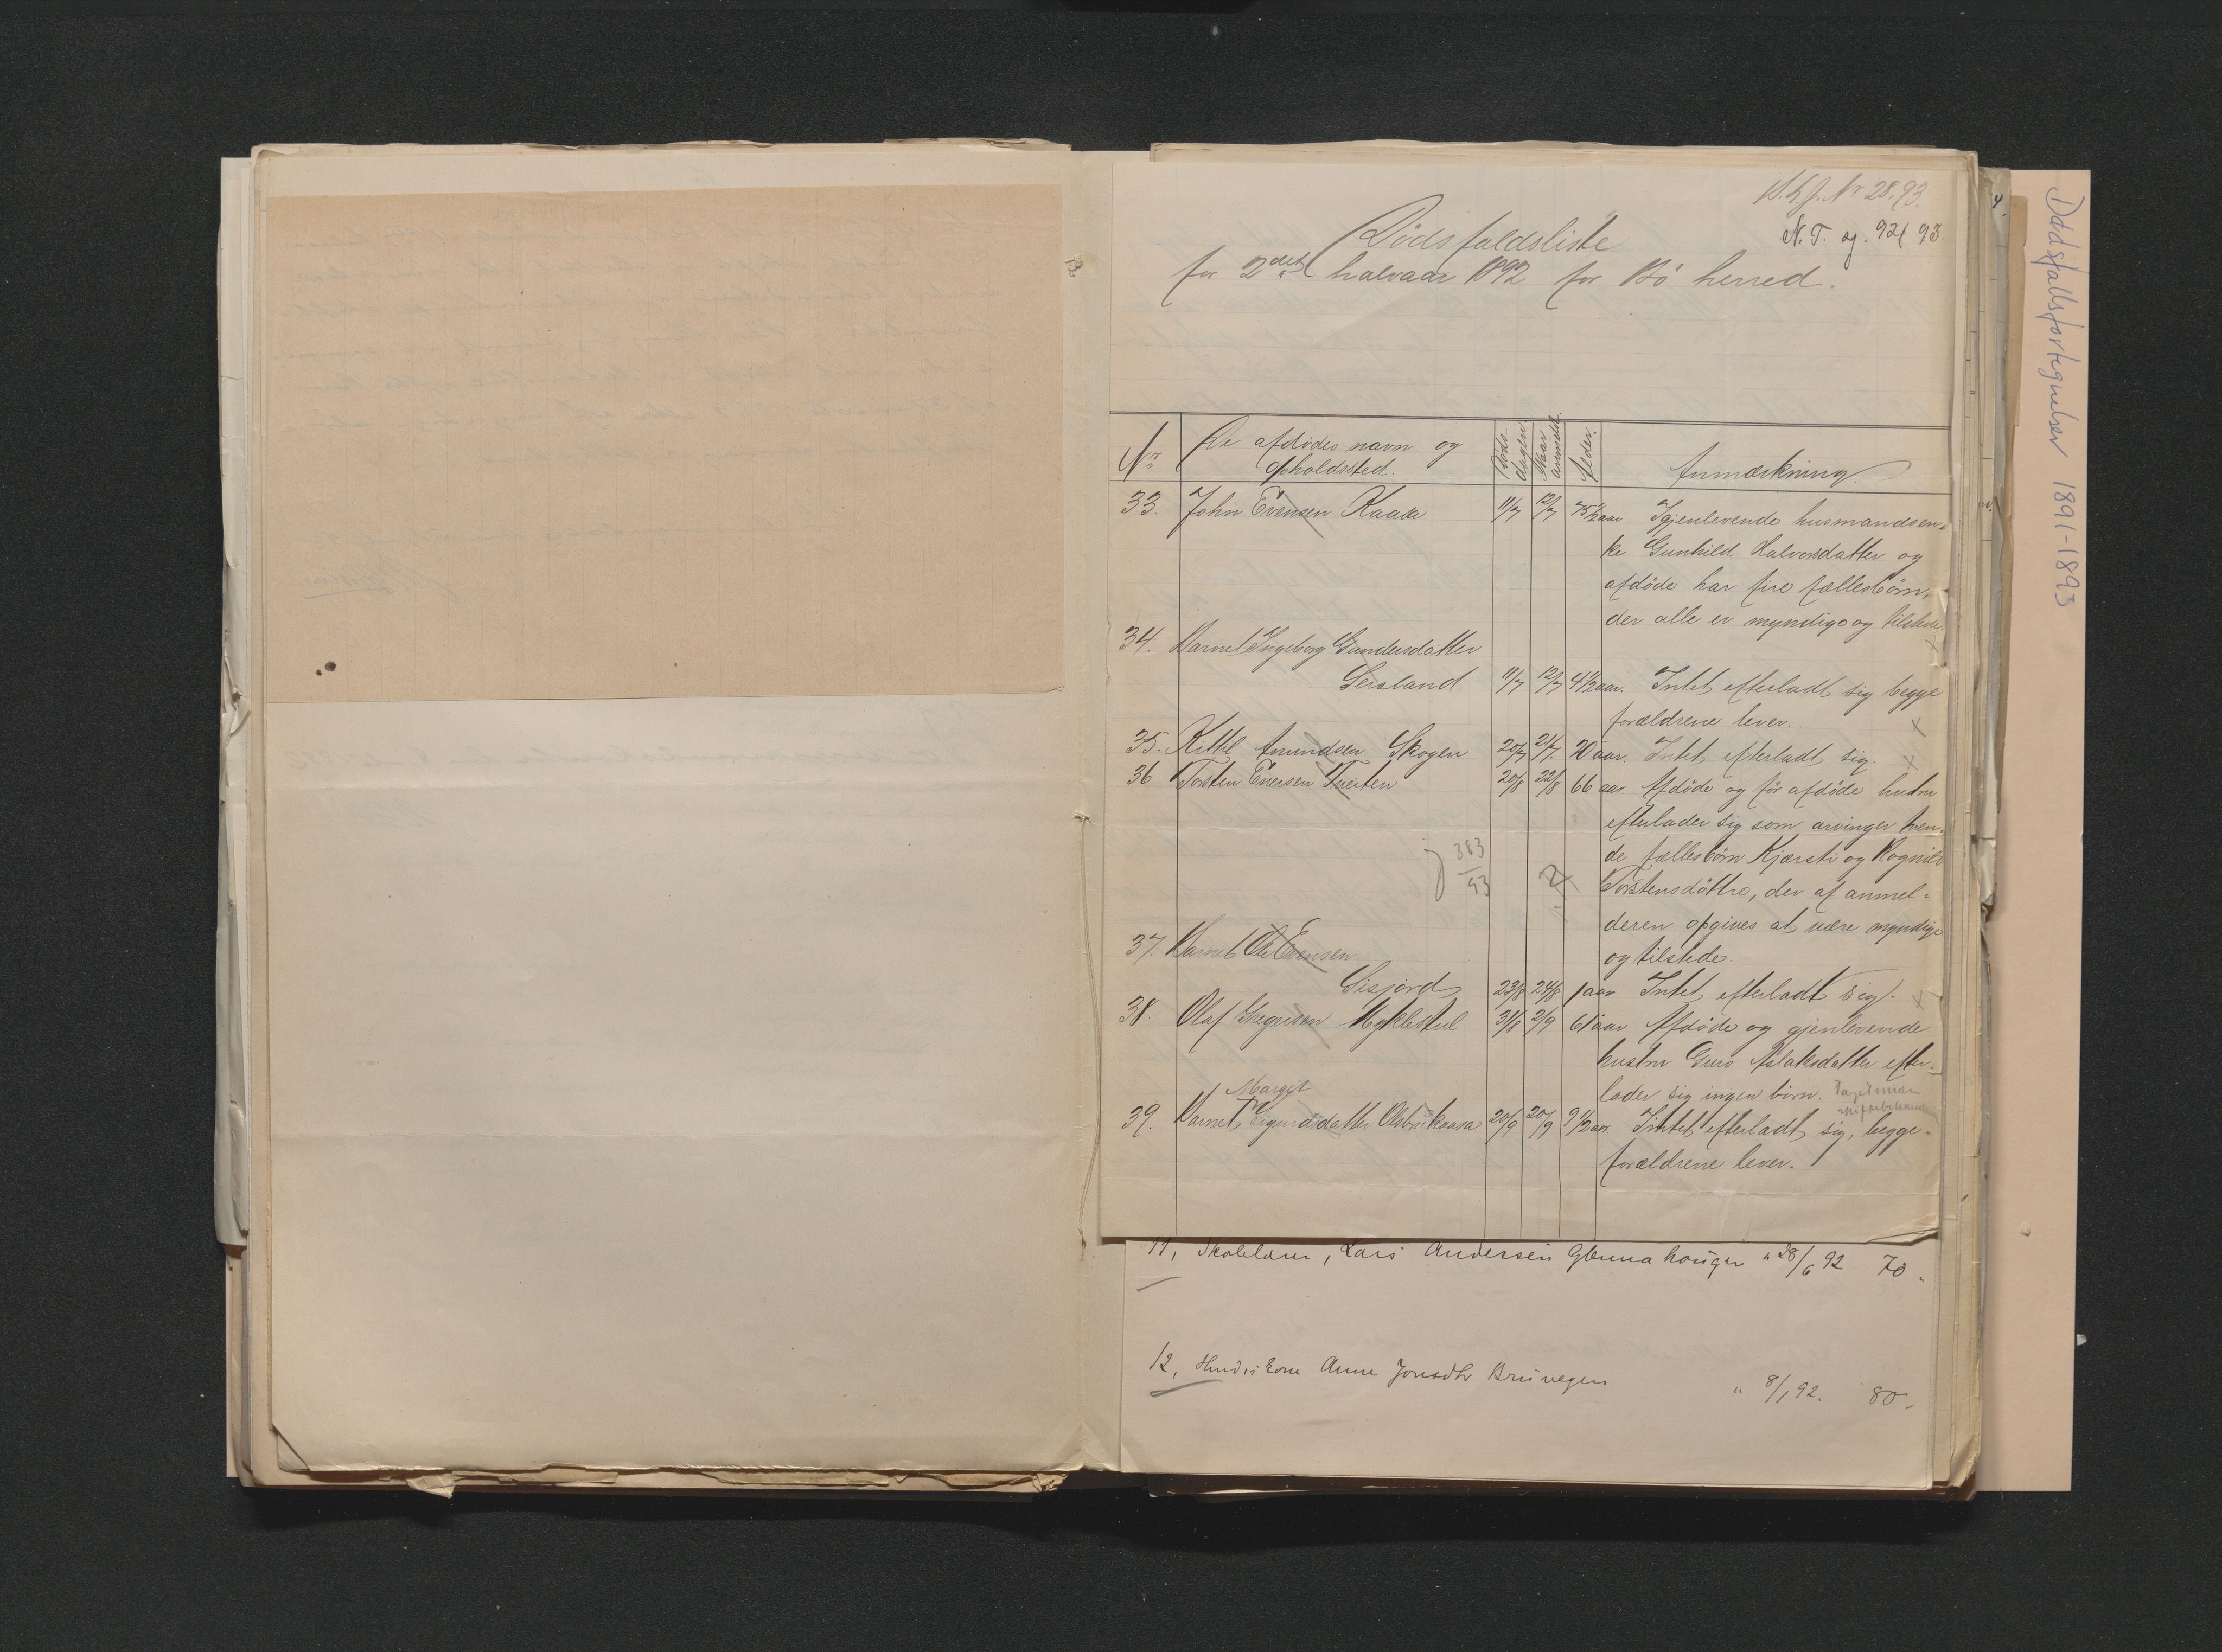 N. T. sg. 92/93
Dødsfaldsliste
for 2det halvaar 1892 for Bö herred.
Nr. De afdødes navn og opholdssted. Døds-dagen. Naar anmeldt. Alder. Anmærkning
33. John Evensen Kaasa 11/7 12/7 75 1/2 aar Igjenlevende husmandsen-
ke Gunhild Halvorsdatter og
afdöde har fire fællesbörn,
der alle er myndige og tilstede.
34. Barnet Ingeborg Gundersdatter
Seisland 11/7 12/7 4 1/2 aar. Intet efterladt sig begge
forældrene lever.
35. Kittil Amundsen Skogen 20/7 21/7 20 aar. Intet efterladt sig.
36 Torsten Evensen Tveiten 20/8 22/8 66 aar. Afdöde og för afdöde hustru
efterlader sig som arvinger tven-
de fællesbörn Kjærsti og Rognild
j 383/93
Torstensdöttre, der af anmel-
deren opgives at være myndige
og tilstede.
37. Barnet Ole Evensen
Sisjord 23/8 24/8 1 aar Intet efterladt sig.
38. Olaf Gregusen Myklestul 31/8 2/9 61 aar Afdöde og gjenlevende
hustru Guro Aslaksdatter efter-
lader sig ingen börn. Taget under
skiftebehandling
Margit
39. Barnet Sigurdsdatter Olsbrukaasa 20/9 20/9 9 1/2 aar Intet efterladt sig, begge
forældrene lever.
11, Skolelærer, Lars Andersen Glenna hougen " 28/6 92 70 "
12, Anne Jonsdtr Bruvegen " 8/1 92. 80 "
Dødsfallsfortegnelser 1891-1893